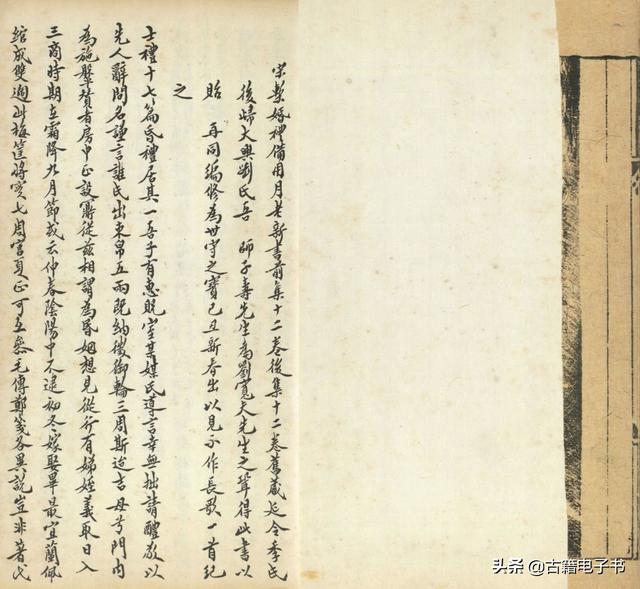 宋槧婚禮備用月老新書前集十二卷後集十二卷舊藏延令季氏
後歸大興劉氏吾 師子壽先生為劉寬夫先生之壻得此書以
貽 再同編修為世守之寶己丑新春出以見示作長歌一首紀
之
士禮十七篇昏禮居其一吾子有惠貺室某媒氏導言幸無拙請醴敬以
先人辭問名謹言誰氏出束帛五兩既納徵御輪三周斯迨吉母兮門内
為施鞶贊者房中正設罽從茲相謂為昏姻想見從行有娣姪義取日入
三商時期在霜降九月節或云仲春陰陽中不逮初冬嫁娶畢最宜蘭佩
綰成雙適此梅筐將實七周官夏正可互參毛傳鄭箋各異說豈非著代
头条@古籍电子书